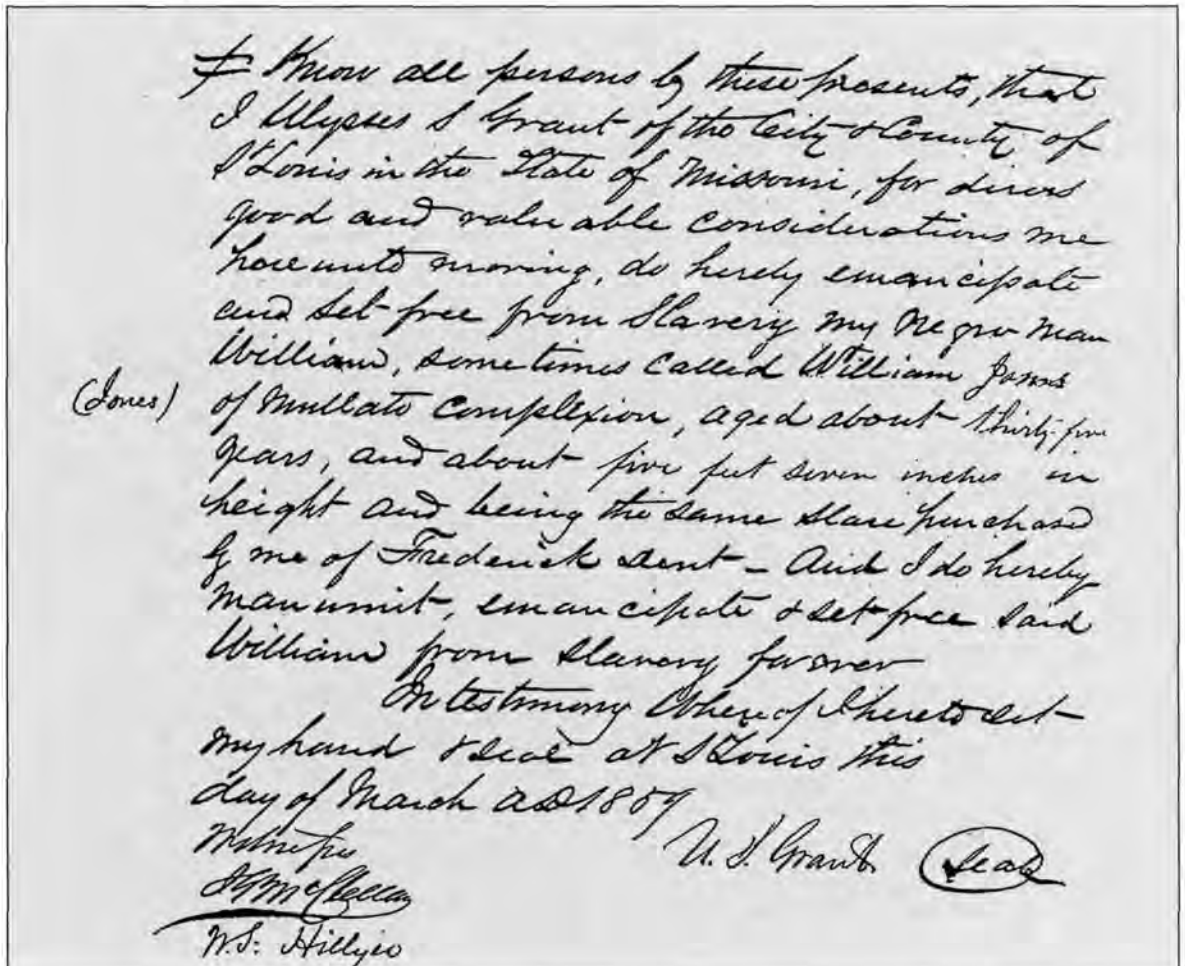 Know all persons by these presents, that
I Ulysses S Grant of the City & County of
St Louis in the State of Missouri, for divers
good and valuable considerations me
hereunto moving, do hereby emancipate
and set free from Slavery my Negro man
William, sometimes called William Jones
(Jones) of Mullato complexion, aged about thirty-five
years, and about five feet seven inches in
height and being the same slave purchased
by me of Frederick Dent - And I do hereby
manumit, emancipate & set free said
William from slavery forever
In testimony Whereof I hereto set
my hand & seal at St Louis this
day of March AD 1859
Witnesses
U. S. Grant (Seal)
J G McClellan
W. S. Hillyer